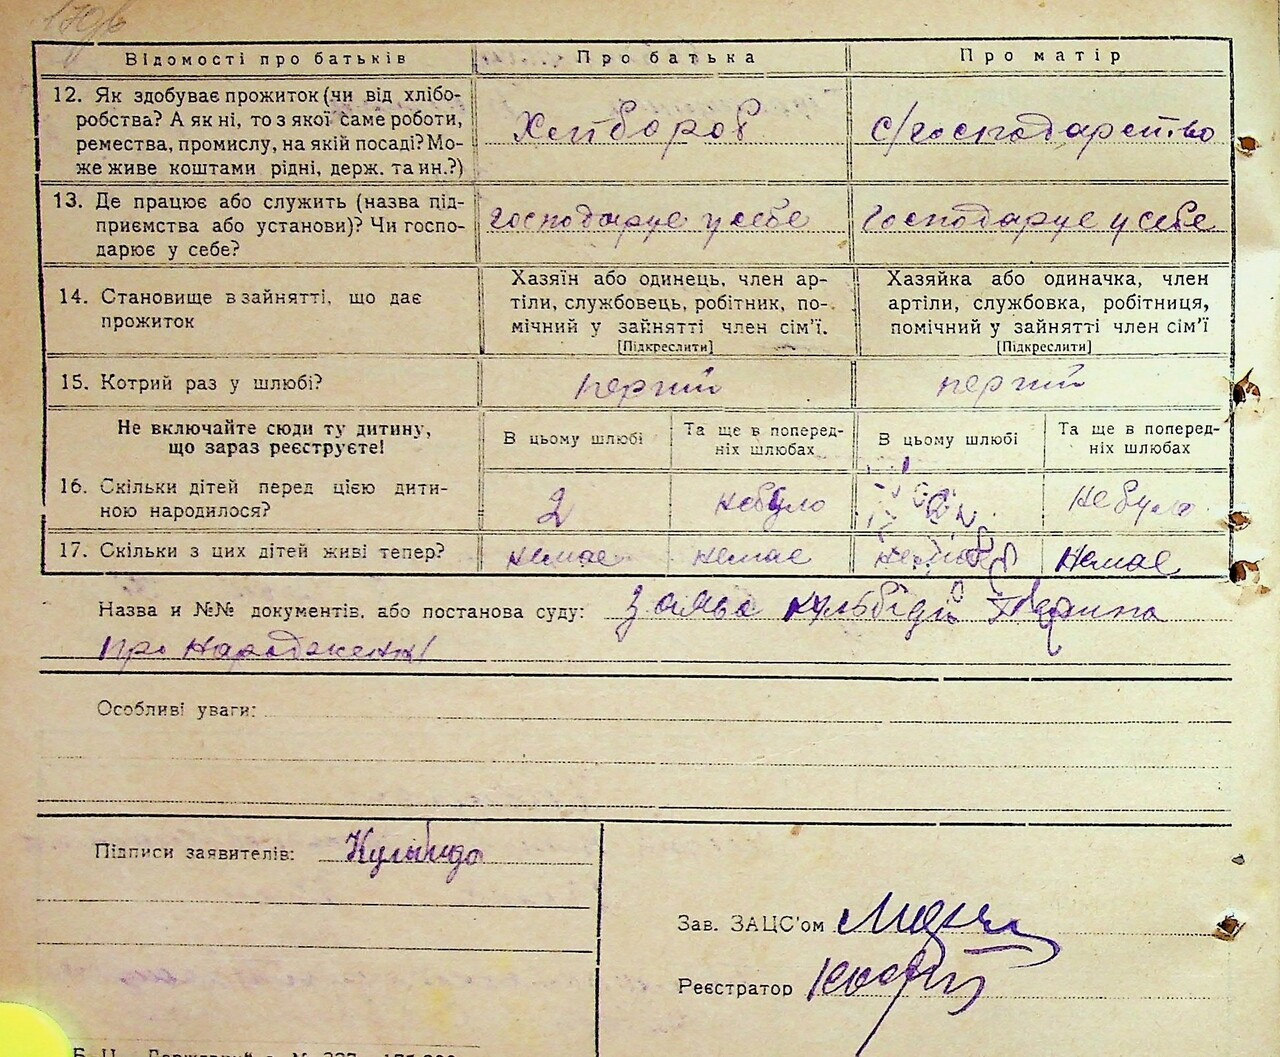 179б
Відомості про батьків
Про батька
Про матір
12. Як здобуває прожиток (чи від хлібо-
робства? А як ні, то з якої саме роботи,
ремества, промислу, на якій посаді? Мо-
же живе коштами рідні, держ. та ин.?)
Хлібороб
с/господарство
13. Де працює або служить (назва під-
приємства або установи)? Чи госпо-
дарює у себе?
господарує у себе
господарує у себе
14. Становище в зайнятті, що дає
прожиток
Хазяїн або одинець, член ар-
тіли, службовець, робітник, по-
мічний у зайнятті член сім'ї.
[Підкреслити]
Хазяйка або одиначка, член
артіли, службовка, робітниця,
помічний у зайнятті член сім'ї
[Підкреслити]
15. Котрий раз у шлюбі?
перший
перший
Не включайте сюди ту дитину,
що зараз реєструєте!
В цьому шлюбі
Та ще в поперед-
ніх шлюбах
В цьому шлюбі
Та ще в поперед-
ніх шлюбах
16. Скільки дітей перед цією дити-
ною народилося?
2
небуло
2
небуло
17. Скільки з цих дітей живі тепер?
немає
немає
немає
Назва и №№ документів, або постанова суду:
заява Кульбіди
про народження
Особливі уваги:
Підписи заявителів:
Кульбида
Зав. ЗАЦС'ом
Реєстратор